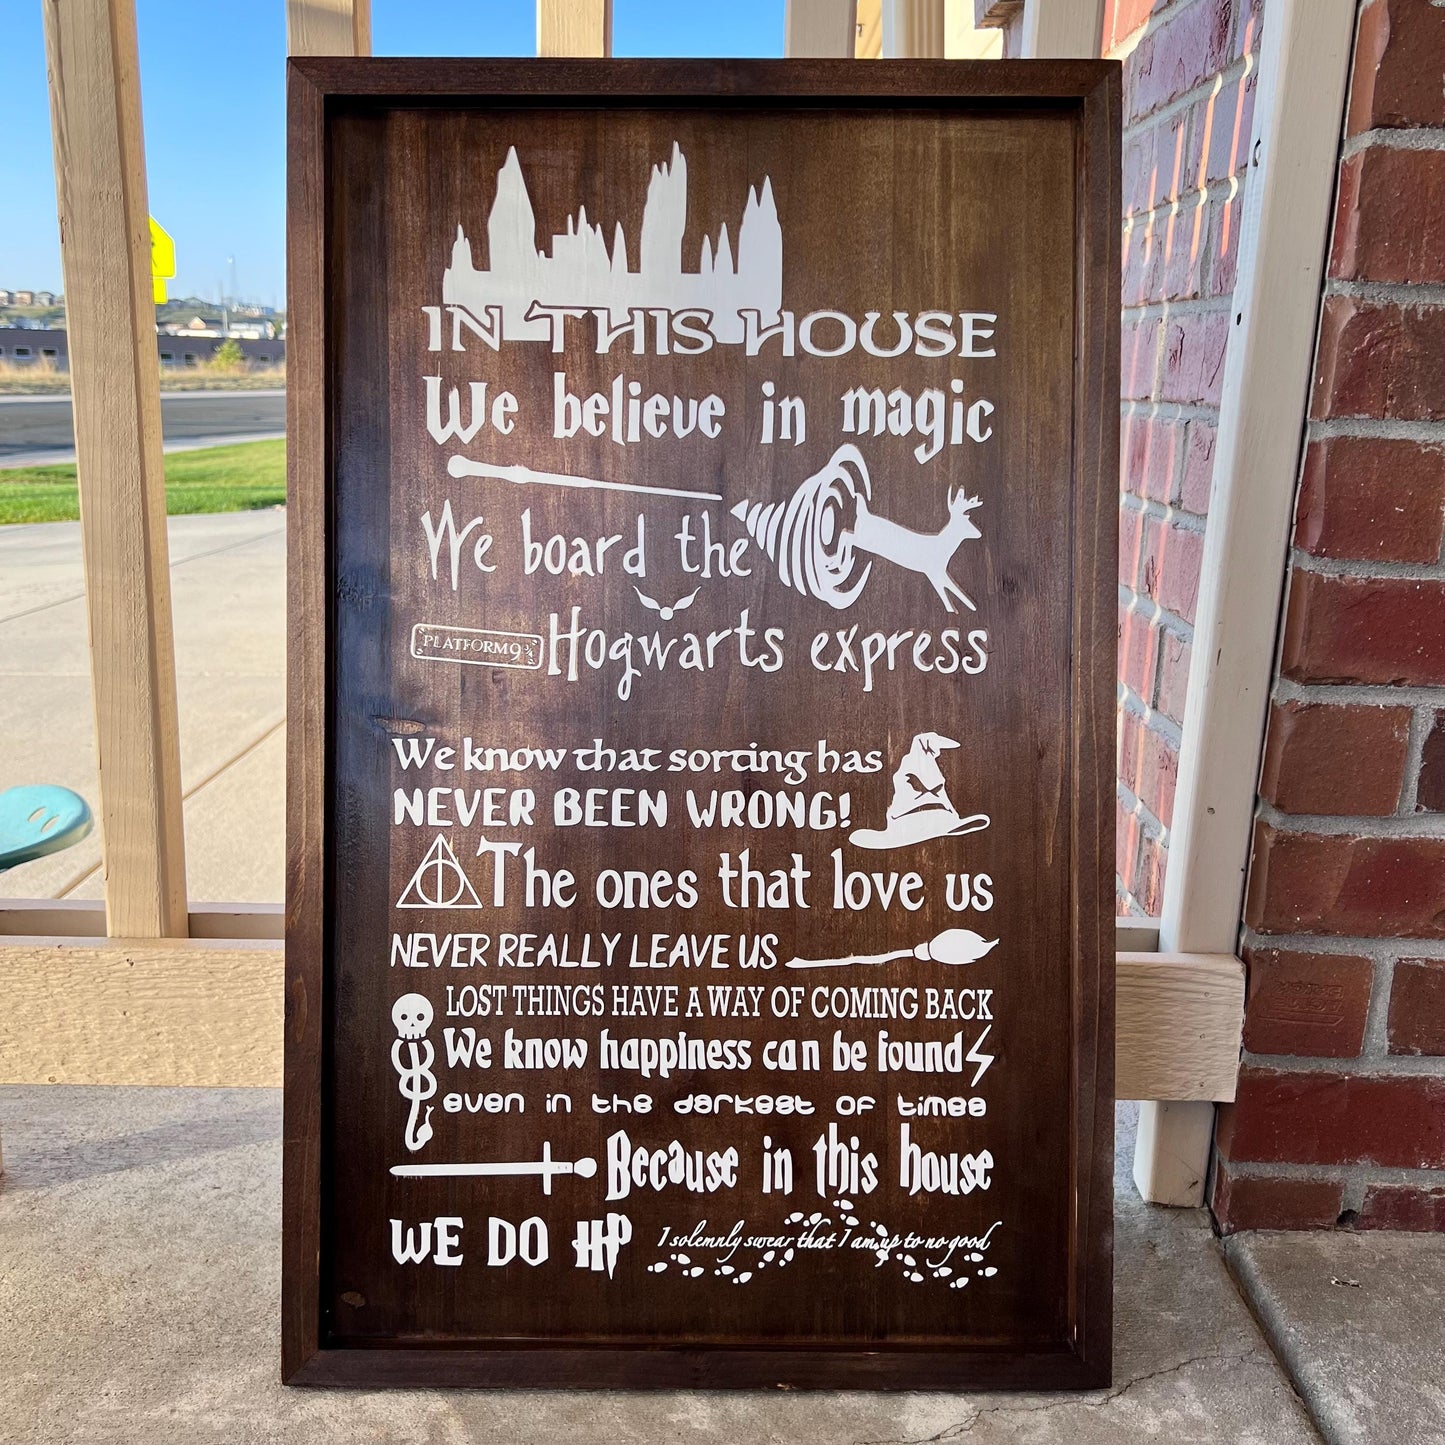 IN THIS HOUSE
We believe in magic
We board the
PLATFORM 9 ¾
Hogwarts express
We know that sorting has
NEVER BEEN WRONG!
The ones that love us
NEVER REALLY LEAVE US
LOST THINGS HAVE A WAY OF COMING BACK
We know happiness can be found
even in the darkest of times
Because in this house
WE DO HP
I solemnly swear that I am up to no good